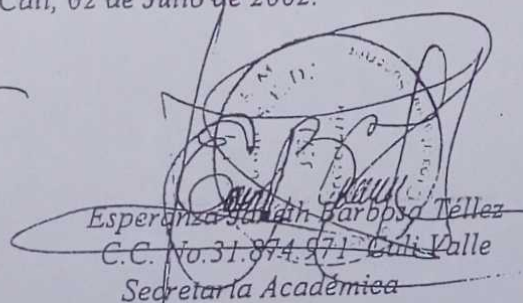 Cali, 02 de Julio de 2002.
Esperanza Janeth Barbosa Téllez
C.C. No.31.874.971 Cali Valle
Secretaria Académica